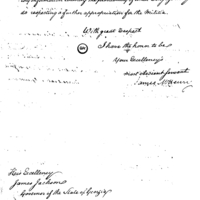 as respecting a further appropriation for the Militia.
With great Respect
I have the honor to be
Your Excellency's
most obedient servant
His Excellency
James Jackson
Governor of the State of Georgia